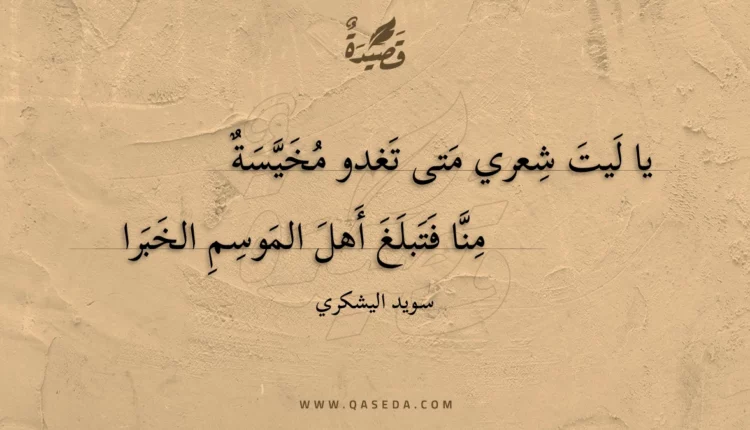 قَصِيدَةٌ
يا لَيتَ شِعري مَتى تَغدو مُخَيَّسَةٌ
مِنَّا فَتَبلَغَ أَهلَ المَوسِمِ الخَبَرا
سويد اليشكري
WWW.QASEDA.COM